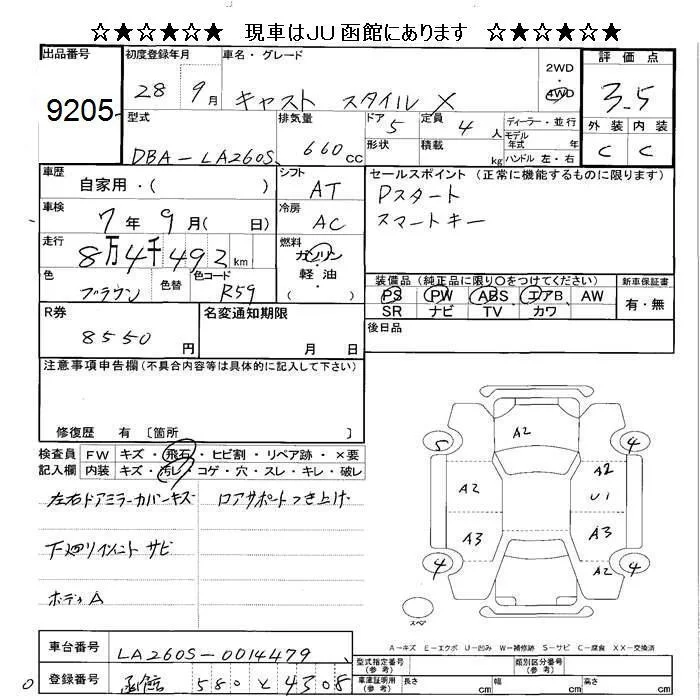 ☆★☆★☆★ 現車はJU函館にあります ☆★☆★☆★
出品番号 9205
初度登録年月 28 9月
車名・グレード キャスト スタイル X
2WD ・ 4WD
評価点 3.5
外装 内装
C C
型式 DBA-LA260S
排気量 660cc
ドア 5 形状
定員 4人 積載 kg
ディーラー・並行
モデル年式 年
ハンドル 左・右
車歴 自家用・( )
シフト AT
セールスポイント (正常に機能するものに限ります)
Pスタート
スマートキー
車検 7年 9月( 日)
冷房 AC
走行 8万4千492km
燃料 ガソリン・軽油・( )
色 ブラウン 色替 色コード R59
装備品 (純正品に限り○をつけてください) 新車保証書
PS PW ABS エアB AW 有・無
SR ナビ TV カワ
R券 8550円
名変通知期限 月 日
後日品
注意事項申告欄(不具合内容等は具体的に記入して下さい)
修復歴 有 〔箇所 〕
検査員記入欄 FW キズ・飛石・ヒビ割・リペア跡・×要
内装 キズ・汚レ・コゲ・穴・スレ・キレ・破レ
左右ドアミラーカバーキズ ロアサポートつき上げ
サビ
ボディA
A2
5 4
A2 A2
U1
A3 A3
4 A2 4
スペア
A-キズ E-エクボ U-凹み W-補修跡 S-サビ C-腐食 XX-交換済
車台番号 LA260S-0014479
登録番号 函館 580 と 4308
型式指定番号(参考) 類別区分番号(参考)
車庫証明用(参考) 長さ cm 幅 cm 高さ cm